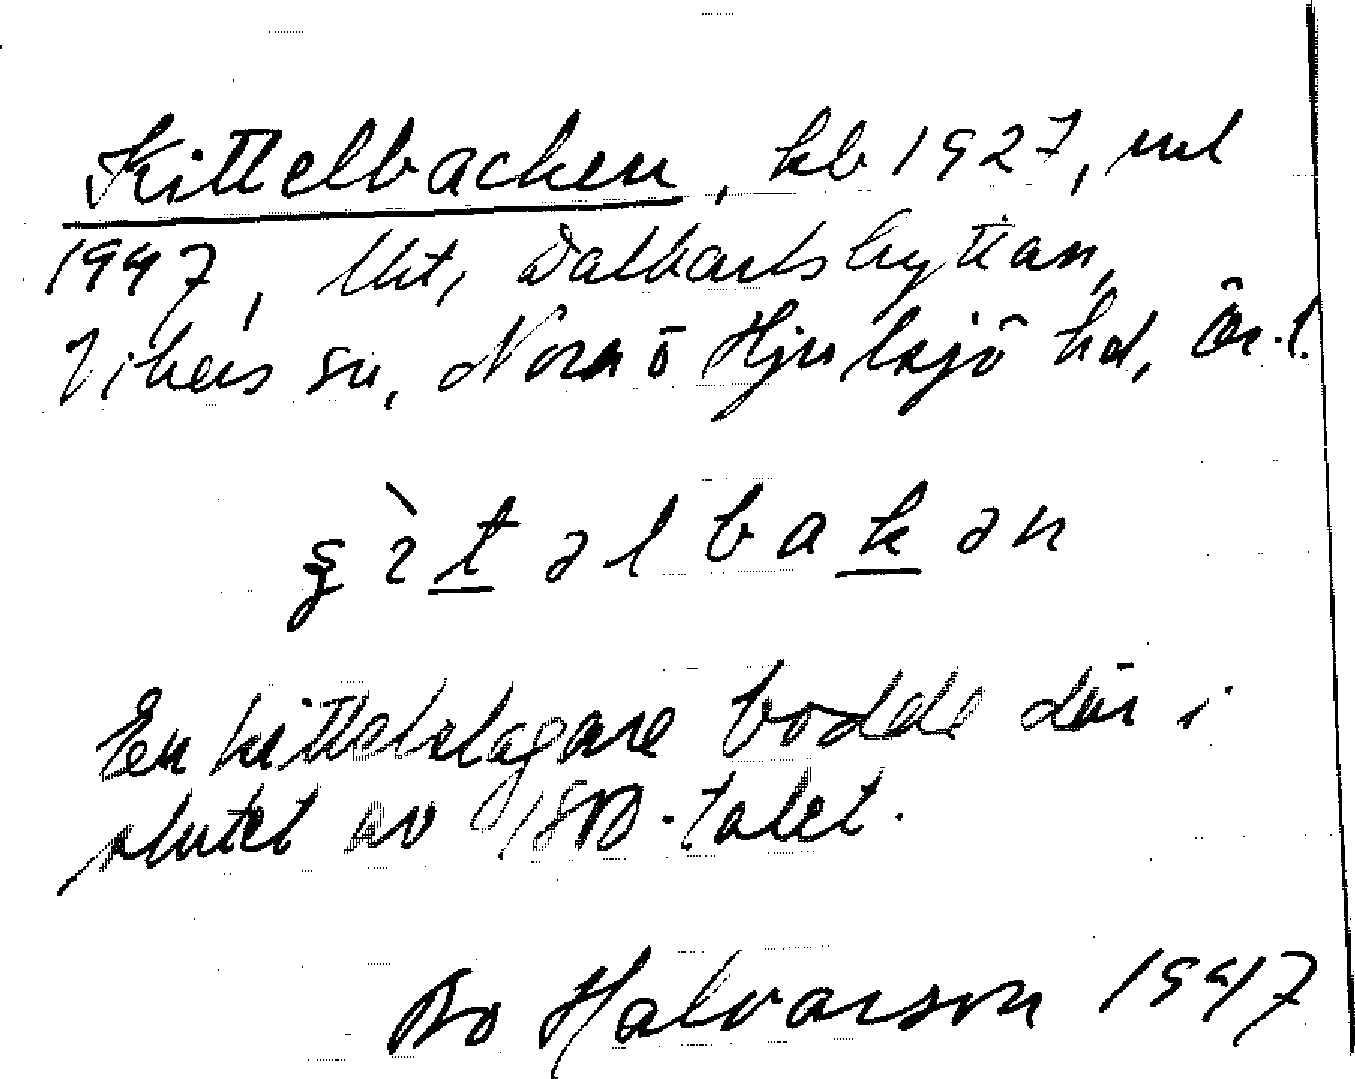 Kittelbacken, hb 1927, uml
1947, lht, Dalkarlshyttan,
Vikers sn, Nora o Hjulsjö hd, Ör.l.
ʂìtəlbakən
En kittelslagare bodde där i
slutet av 1800-talet.
Bo Halvarson 1947